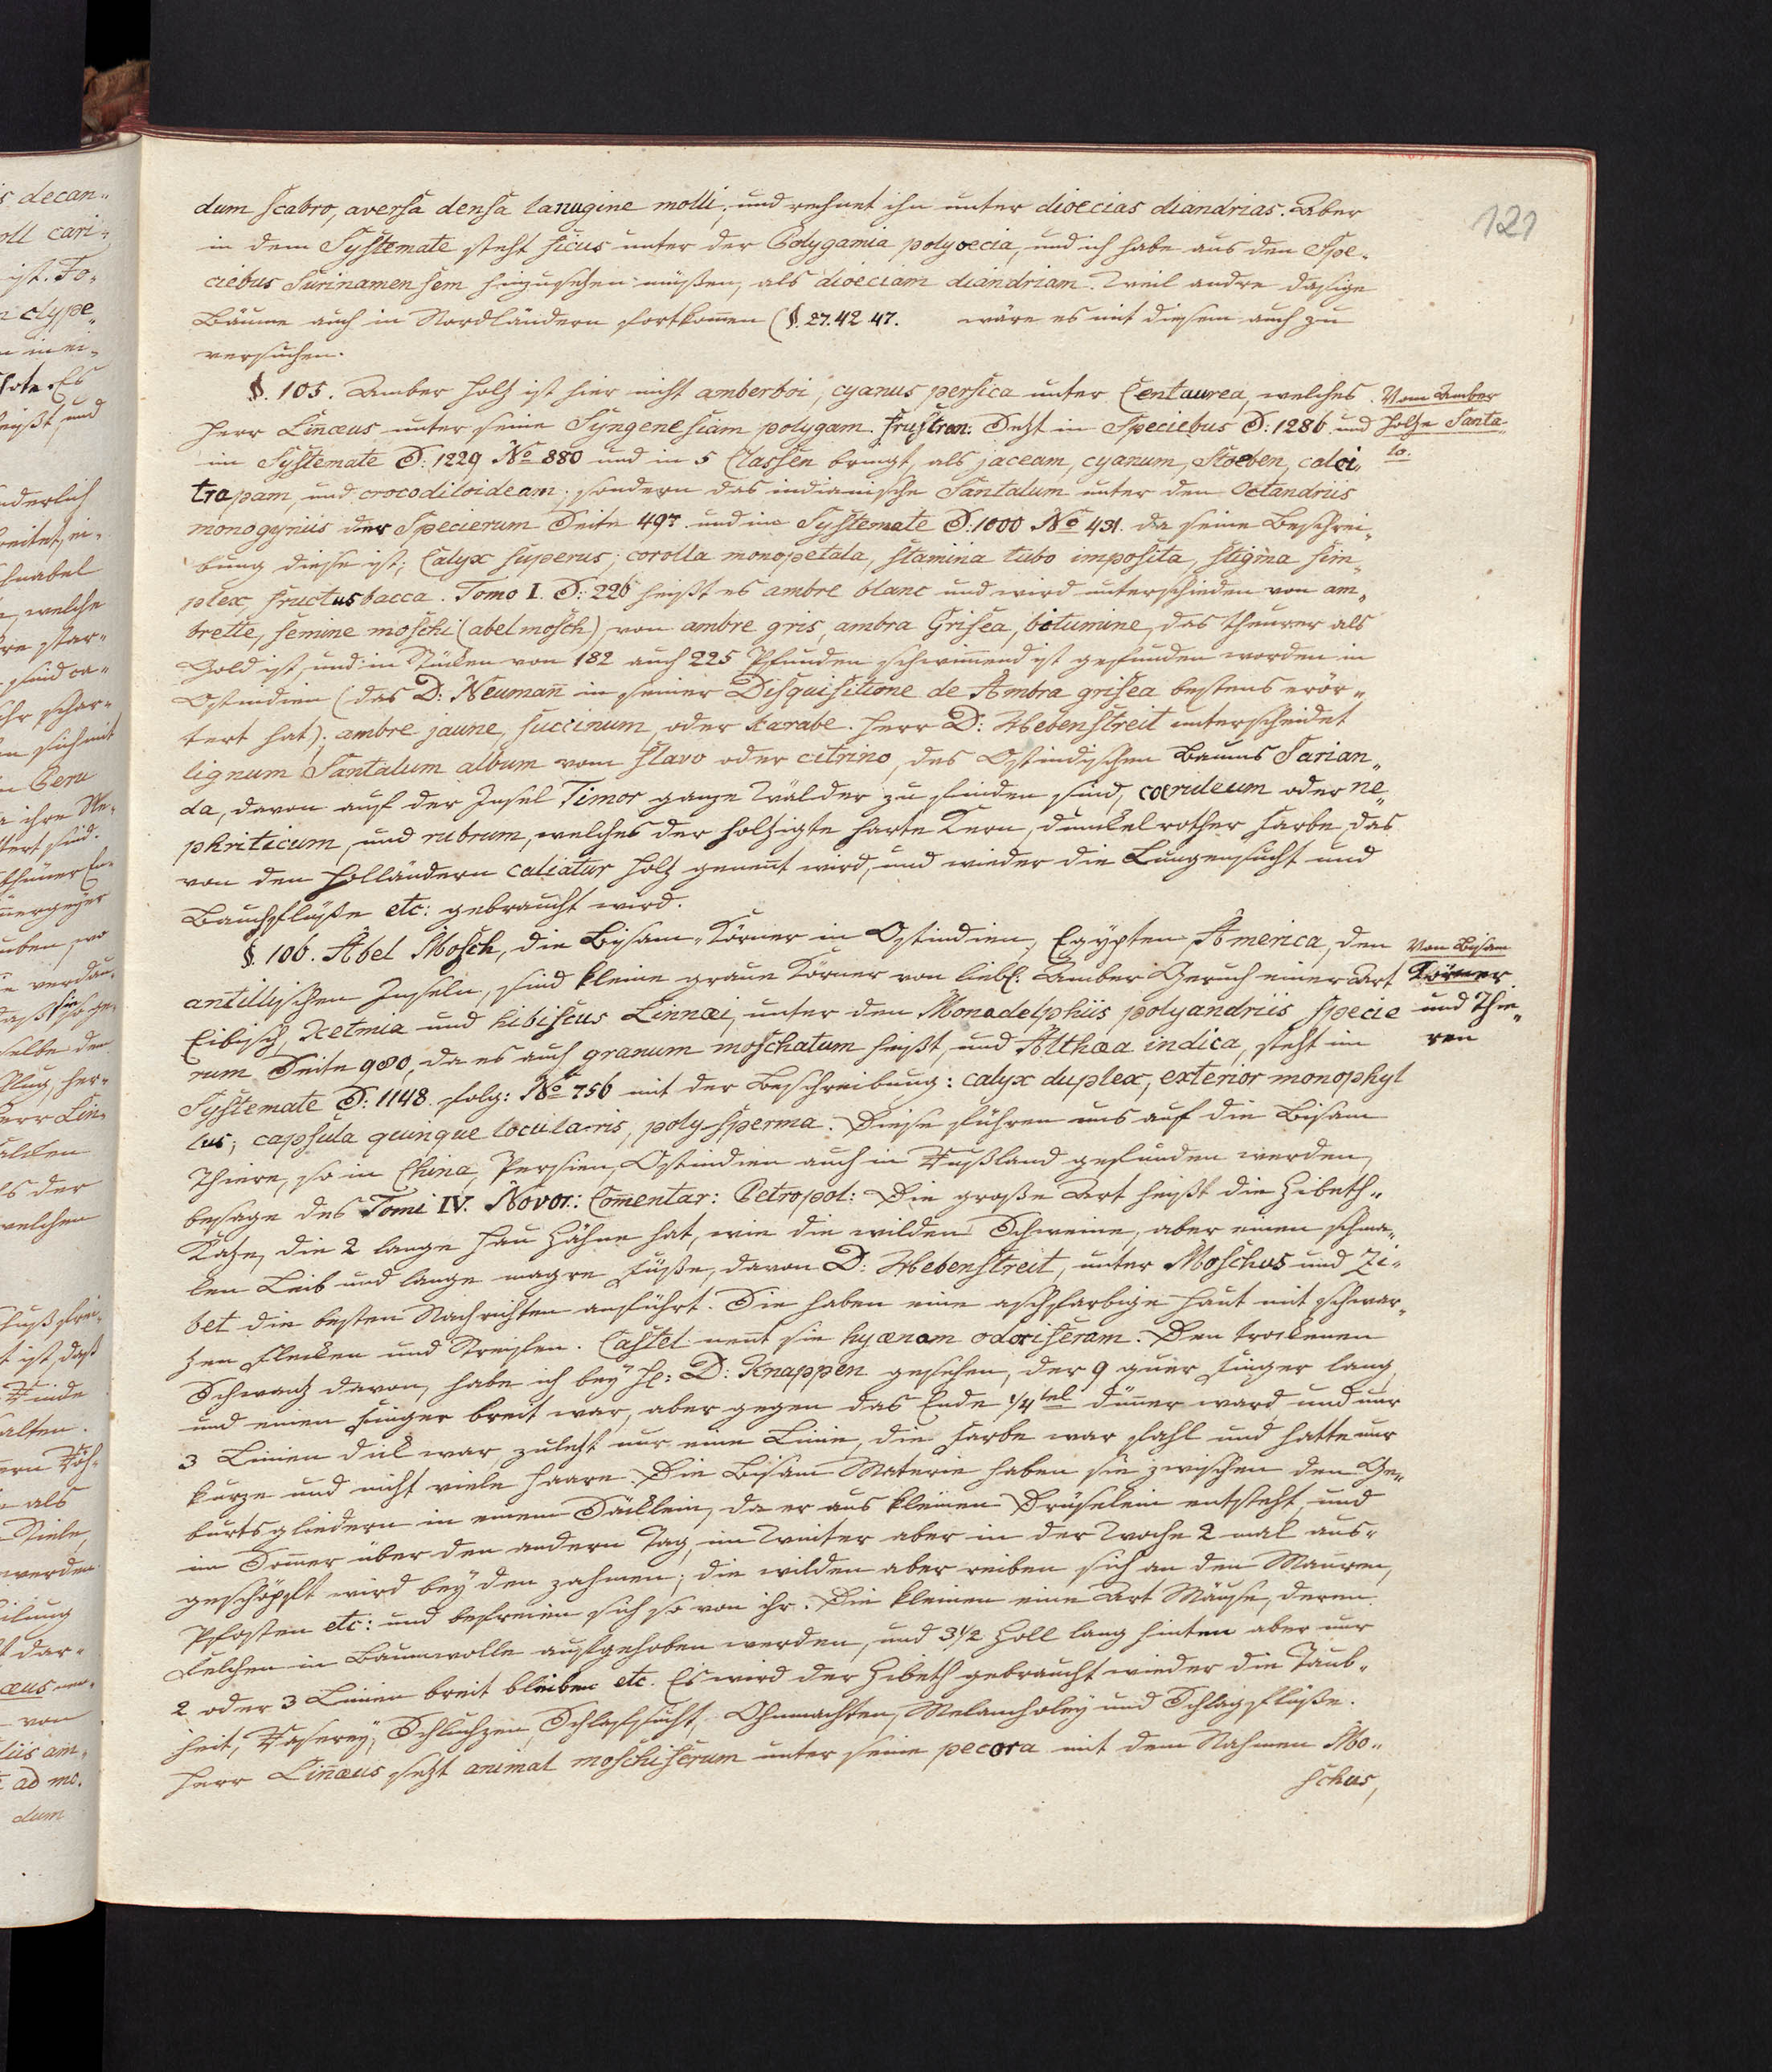 121
dum scabro, aversa densa lanugine molli, und rechnet ihn unter dioecias diandrias. Aber
in dem Systemate steht ficus unter der Polygamia polyoecia, und ich habe aus den Spe-
ciebus Surinamensem hinzusehen müßen, als dioeciam diandriam. Weil andre dasige
Bäume auch in Nordländern fortkom̅en (§. 27. 42. 47. wäre es mit diesem auch zu
versuchen.
§. 105. Amber Holz ist hier nicht amberboi, cyanus persica unter Centaurea, welches
Vom Amber
Holze Santa-
lo.
Herr Lin̅æus unter seine Syngenesiam polygam. frustran: Setzt in Speciebus S: 1286. und
im Systemate S: 1229 No 880 und in 5 Classen bringt, als jaceam, cyanum, Stoeben, calci-
trapam, und crocodiloideam. sondern das indianische Santalum unter den Octandriis
monogyniis der Specierum Seite 497. und im Systemate S: 1000 No 431. da seine Beschrei-
bung diese ist; Calyx superus; corolla monopetala, stamina tubo imposita, stigma sim-
plex, fructus bacca. Tomo I. S: 226 heißt es ambre blanc und wird unterschieden von am-
brette, semine moschi (abelmosch) von ambre gris, ambra Grisea, bitumine, das theurer als
Gold ist, und in Stücken von 182 auch 225 Pfunden schwim̅end ist gefunden worden in
Ostindien (das D: Neuman̅ in seiner Disquisitione de Ambra grisea bestens erör-
tert hat); ambre jaune, succinum, oder karabe. Herr D: Hebenstreit unterscheidet
lignum Santalum album vom flavo oder citrino, des Ostindischen Baums Sarian-
da, davon auf der Insel Timor ganze Wälder zu finden sind, coeruleum oder ne-
phriticum, und rubrum, welches der holzigte harte Kern, dunkelrother Farbe, das
von den Holländern caliatur Holz genen̅t wird, und wieder die Lungensucht und
Bauchflüße etc: gebraucht wird.
§. 106. Abel Mosch, die Bisam-Körner in Ostindien, Egypten, America, den
Von Bisam
Körner
und Thie-
ren
antillischen Inseln, sind kleine graue Körner von liebl: Amber Geruch einer Art
Eibisch, Ketmia und hibiscus Linnæi, unter den Monadelphiis polyandriis Specie
rum Seite 980, da es auch granum moschatum heißt, und Althæa indica, steht im
Systemate S: 1148. folg: No 756 mit der Beschreibung: calyx duplex, exterior monophyl
lus; capsula quinque locularis, poly-sperma. Diese führen uns auf die Bisam
Thiere, so in China, Persien, Ostindien auch in Rußland gefunden werden,
besage des Tomi IV. Novor: Com̅entar: Petropol: Die große Art heißt die Zibeth-
Katze, die 2 lange Hau Zähne hat, wie die wilden Schweine, aber einen schma-
len Leib und lange magre Füße, davon D: Hebenstreit, unter Moschus und Zi-
bet die besten Nachrichten anführt. Sie haben eine aschfarbige Haut mit schwar-
zen Flecken und Streifen. Castel. nen̅t sie hyænam odoriferam. Den trockenen
Schwanz davon, habe ich bey H: D: Knappen gesehen, der 9 quer Finger lang
und einen Finger breit war, aber gegen das Ende 1/4tel dün̅er ward, und nur
3 Linien dick war, zuletzt nur eine Linie, die Farbe war fahl und hatte nur
kurze und nicht viele Haare. Die Bisam Materie haben sie zwischen den Ge-
burtsgliedern in einem Säcklein, da er aus kleinen Drüselein entsteht, und
im Som̅er über den andern Tag, im Winter aber in der Woche 2 mal aus-
geschöpft wird bey den zahmen; die wilden aber reiben sich an den Mauren,
Pfosten etc: und befreien sich so von ihr. Die kleinen eine Art Mäuse, deren
Felchen in Baumwolle aufgehoben werden, und 3 1/2 Zoll lang hinten aber nur
2 oder 3 Linien breit bleiben etc. Es wird der Zibeth gebraucht wieder die Taub-
heit, Raserey, Schluchzen, Schlafsucht, Ohnmachten, Melancholey und Schlagflüße.
Herr Lin̅æus setzt animal moschiferum unter seine pecora mit dem Nahmen Mo-
schus,